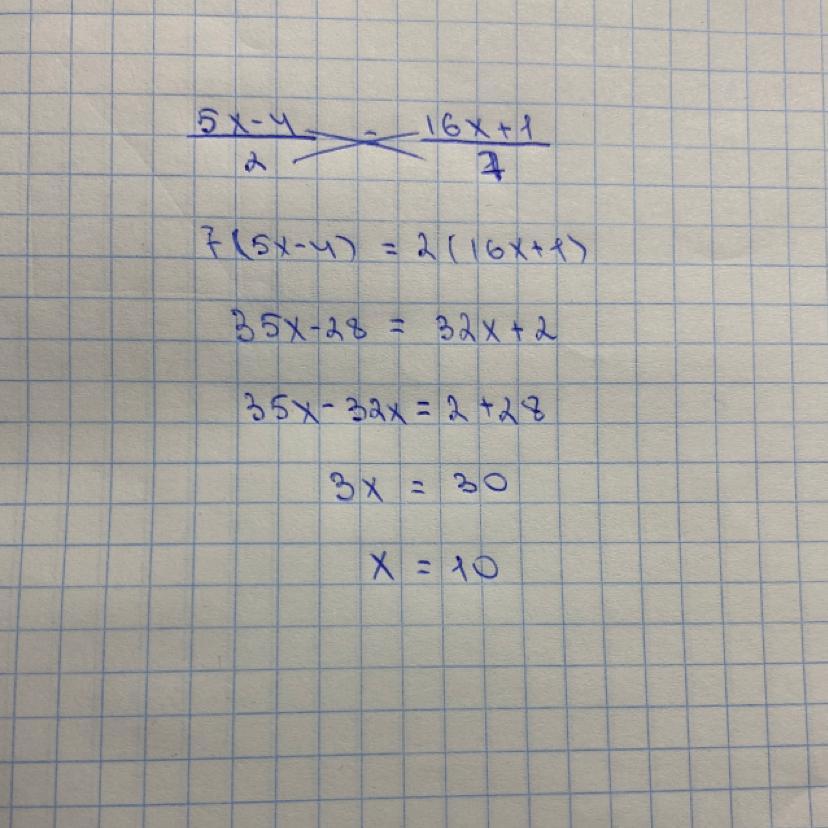 5x-4 = 16x+1
2 7
7(5x-4) = 2(16x+1)
35x-28 = 32x+2
35x-32x = 2+28
3x = 30
x = 10